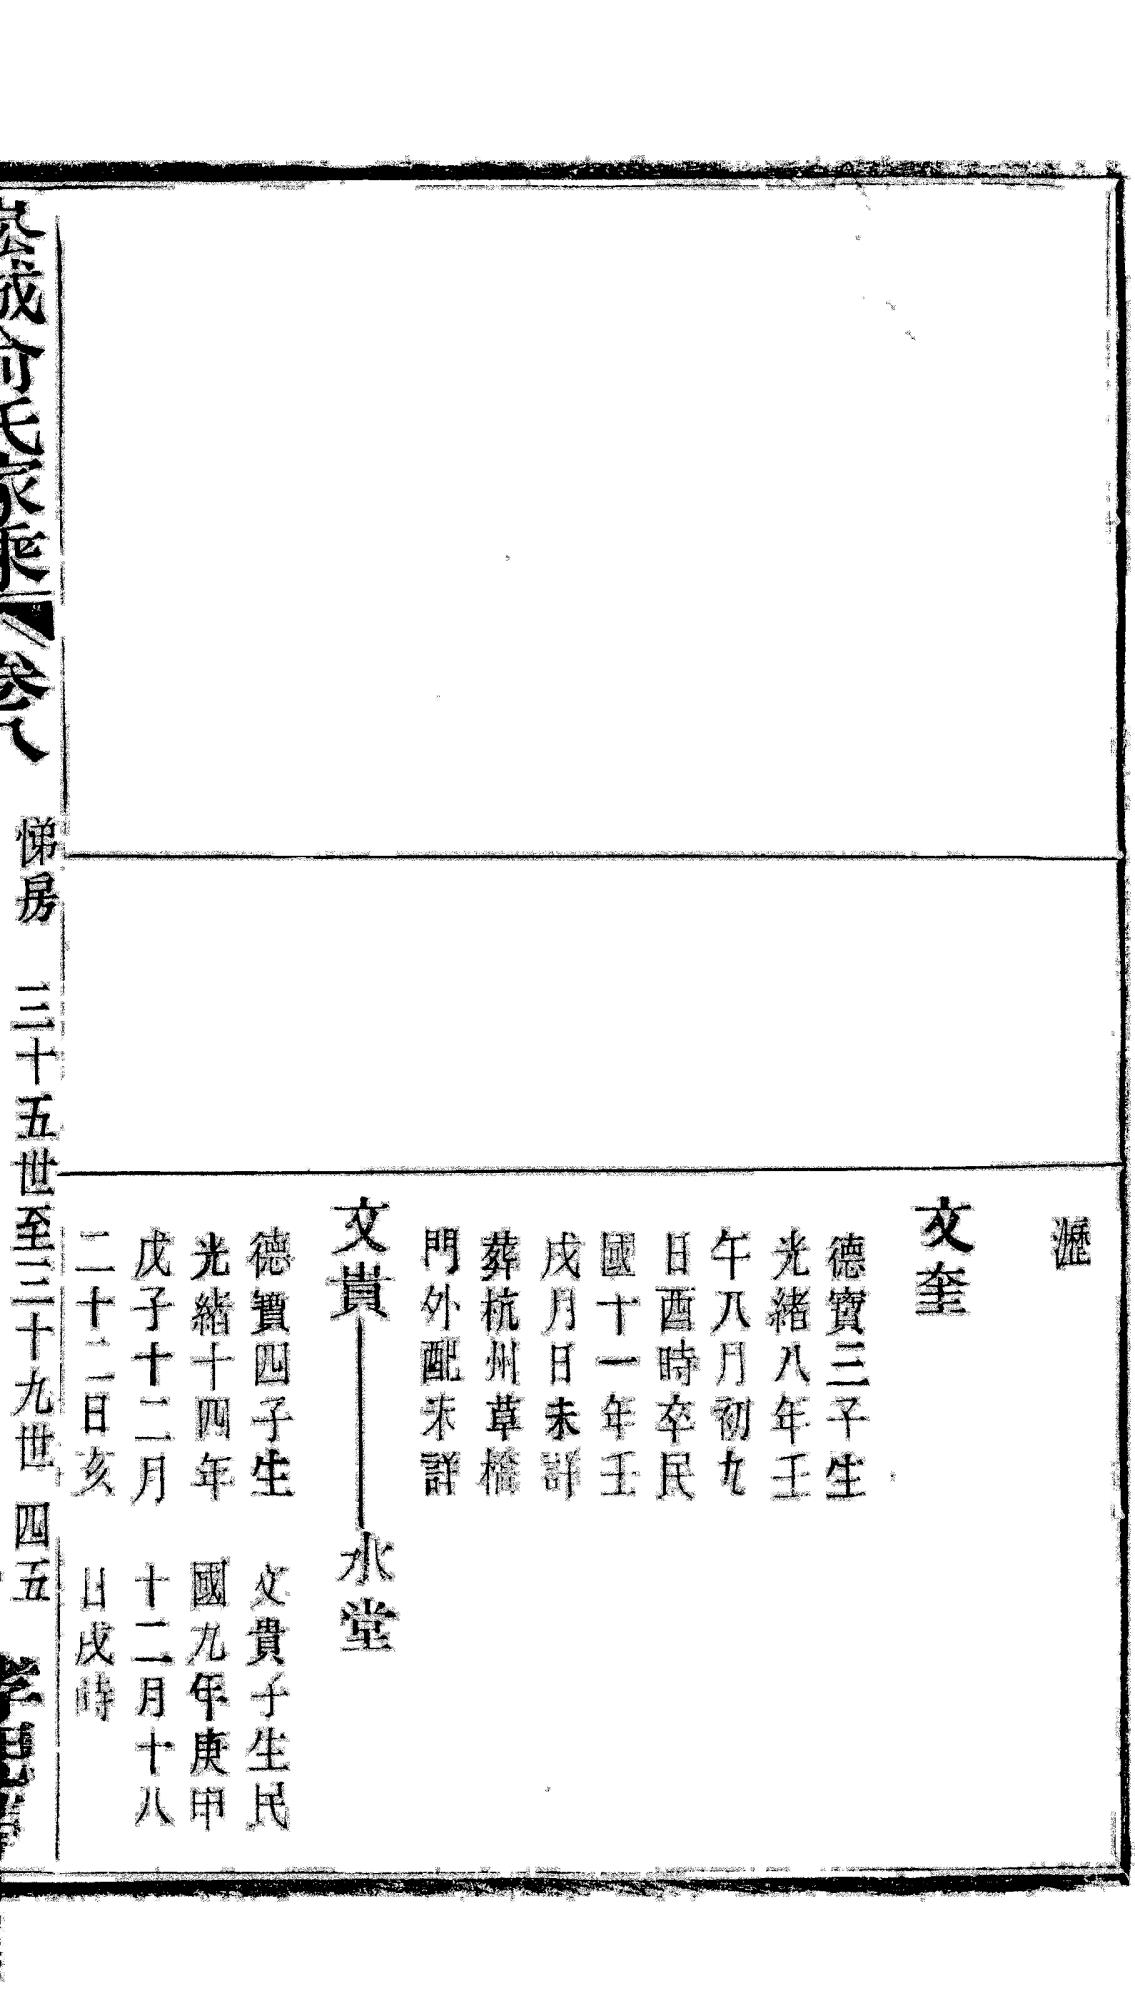 瀝
文奎
德寶三子生
光緒八年壬
午八月初九
日酉時卒民
國十一年壬
戌月日未詳
葬杭州草橋
門外配未詳
文貴——水堂
德寶四子生
光緒十四年
戊子十二月
二十二日亥
文貴子生民
國九年庚申
十二月十八
日戌時
俞氏家乘 卷八 悌房 三十五世至三十九世 四五